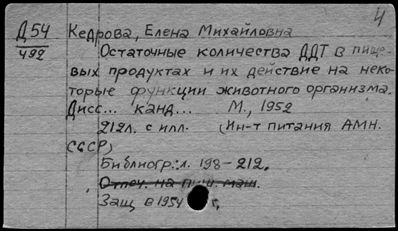 4
Д54 Кедрова, Елена Михайловна
492 Остаточные количества ДДТ в пище-
вых продуктах и их действие на неко-
торые функции животного организма.
Дисс... канд... М., 1952
212л. с илл. (Ин-т питания АМН.
СССР)
Библиогр: л. 198-212.
Отпеч. на пиш. маш.
Защ в 1954 г.